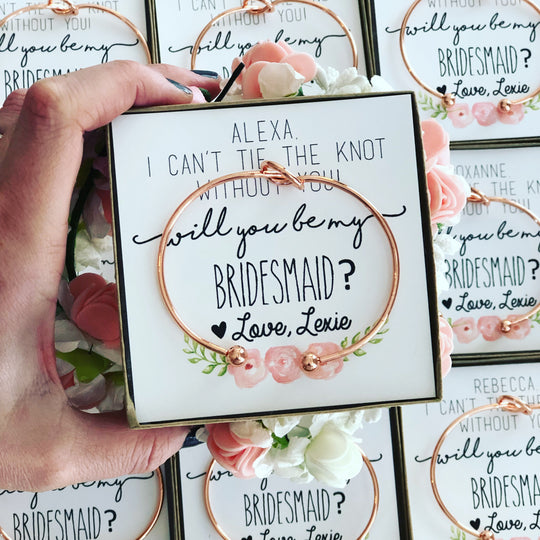 I CAN'T TIE THE KNOT
WITHOUT YOU!
will you be my
BRIDESMAID?
ALEXA,
I CAN'T TIE THE KNOT
WITHOUT YOU!
will you be my
BRIDESMAID?
♥ Love, Lexie
will you be my
BRIDESMAID?
♥ Love, Lexie
ROXANNE
TIE THE KNOT
WITHOUT YOU!
will you be my
BRIDESMAID?
♥ Love, Lexie
REBECCA,
I CAN'T TIE THE KNOT
WITHOUT YOU!
will you be my
BRIDESMAID?
♥ Love, Lexie
be my
BRIDESMAID?
will you be my
BRIDESMAID?
♥ Love, Lexie